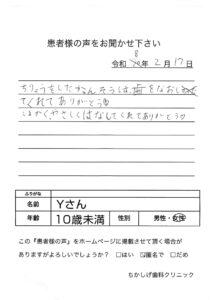 患者様の声をお聞かせ下さい
令和 8年 2月 17日
ちりょうをしたかんそうは、歯をなおし
てくれてありがとう
はるかくやさしくはなしてくれてありがとう
ふりがな
名前 Yさん
年齢 10歳未満 性別 男性・女性
この『患者様の声』をホームページに掲載させて頂く場合が
ありますがよろしいでしょうか？ □はい ☑匿名で □だめ
ちかしげ歯科クリニック